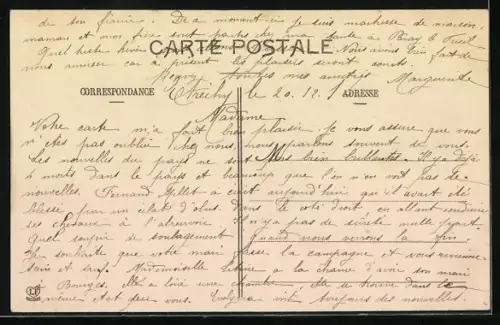 de son fiancé. Dea moment-ci je suis maîtresse de maison,
maman et mon frère sont partis chez ma tante à
Quel triste hiver Nous avons bien fait de
nous amuser car à présent les plaisirs seront courts.
Recevez toutes mes amitiés Marguerite
CARTE POSTALE
CORRESPONDANCE
ADRESSE
le 20.12.
Madame
Votre carte m'a fait bien plaisir. Je vous assure que vous
n'êtes pas oubliée chez nous, nous parlons souvent de vous.
Les nouvelles du pays ne sont pas bien brillantes. Il y a déjà
morts dans le pays et beaucoup que l'on n'en voit pas de
nouvelles. Fernand Millet a écrit aujourd'hui qu'il avait été
blessé par un éclat d'obus dans le côté droit en allant conduire
ses chevaux à l'abreuvoir. Il n'y a pas de sûreté nulle part.
Quel soupir de soulagement quand nous verrons la fin.
Je souhaite que votre mari passe la campagne et vous revienne
sain et sauf. Mademoiselle a la chance d'avoir son mari
à Bourges. Elle a loué une chambre elle se trouve dans le
même état que vous. Evelyna voit toujours des nouvelles.